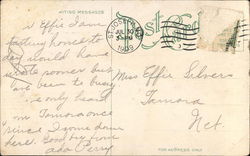 WRITING MESSAGES
Post Card
JUL 30
1909
Effie I am
starting home to
day would have
wrote sooner but
been to busy
only heard
from Tamora once
since I come down
here.
Ada Perry
Miss Effie Silvers
Tamora
Neb.
FOR ADDRESS ONLY